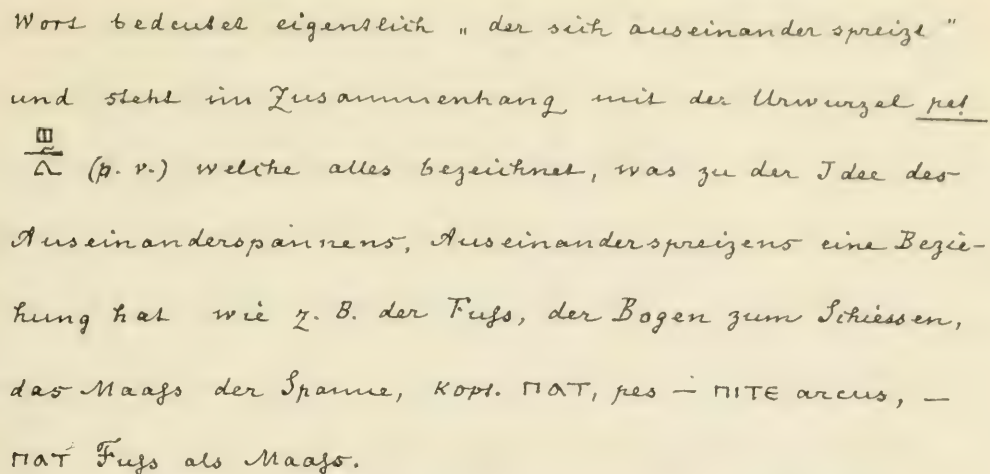 Wort bedeutet eigentlich „ der sich auseinander spreizt "
und steht im Zusammenhang mit der Urwurzel pet
(p. v.) welche alles bezeichnet, was zu der Idee des
Auseinanderspannens, Auseinanderspreizens eine Bezie-
hung hat wie z. B. der Fuſs, der Bogen zum Schiessen,
das Maaſs der Spanne, Kopt. ⲡⲁⲧ, pes – ⲡⲓⲧⲉ arcus, –
ⲡⲁⲧ Fuſs als Maaſs.